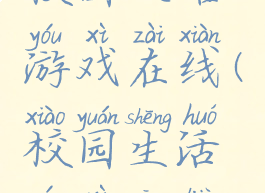 yóu xì zài xiàn
游戏在线(
xiào yuán shēng huó
校园生活